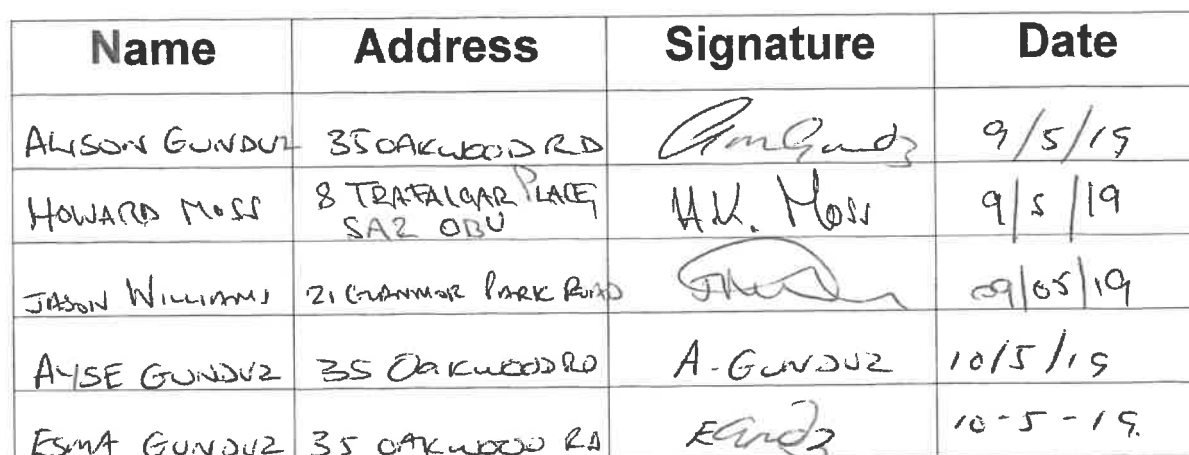 Name Address Signature Date
ALISON GUNDUZ 35 OAKWOOD RD 9/5/19
HOWARD MOSS 8 TRAFALGAR PLACE, H.K. Moss 9/5/19
SA2 0BU
JASON WILLIAMS 21 GLANMOR PARK ROAD 09/05/19
AYSE GUNDUZ 35 OAKWOOD RD A-GUNDUZ 10/5/19
ESMA GUNDUZ 35 OAKWOOD RD 10-5-19.